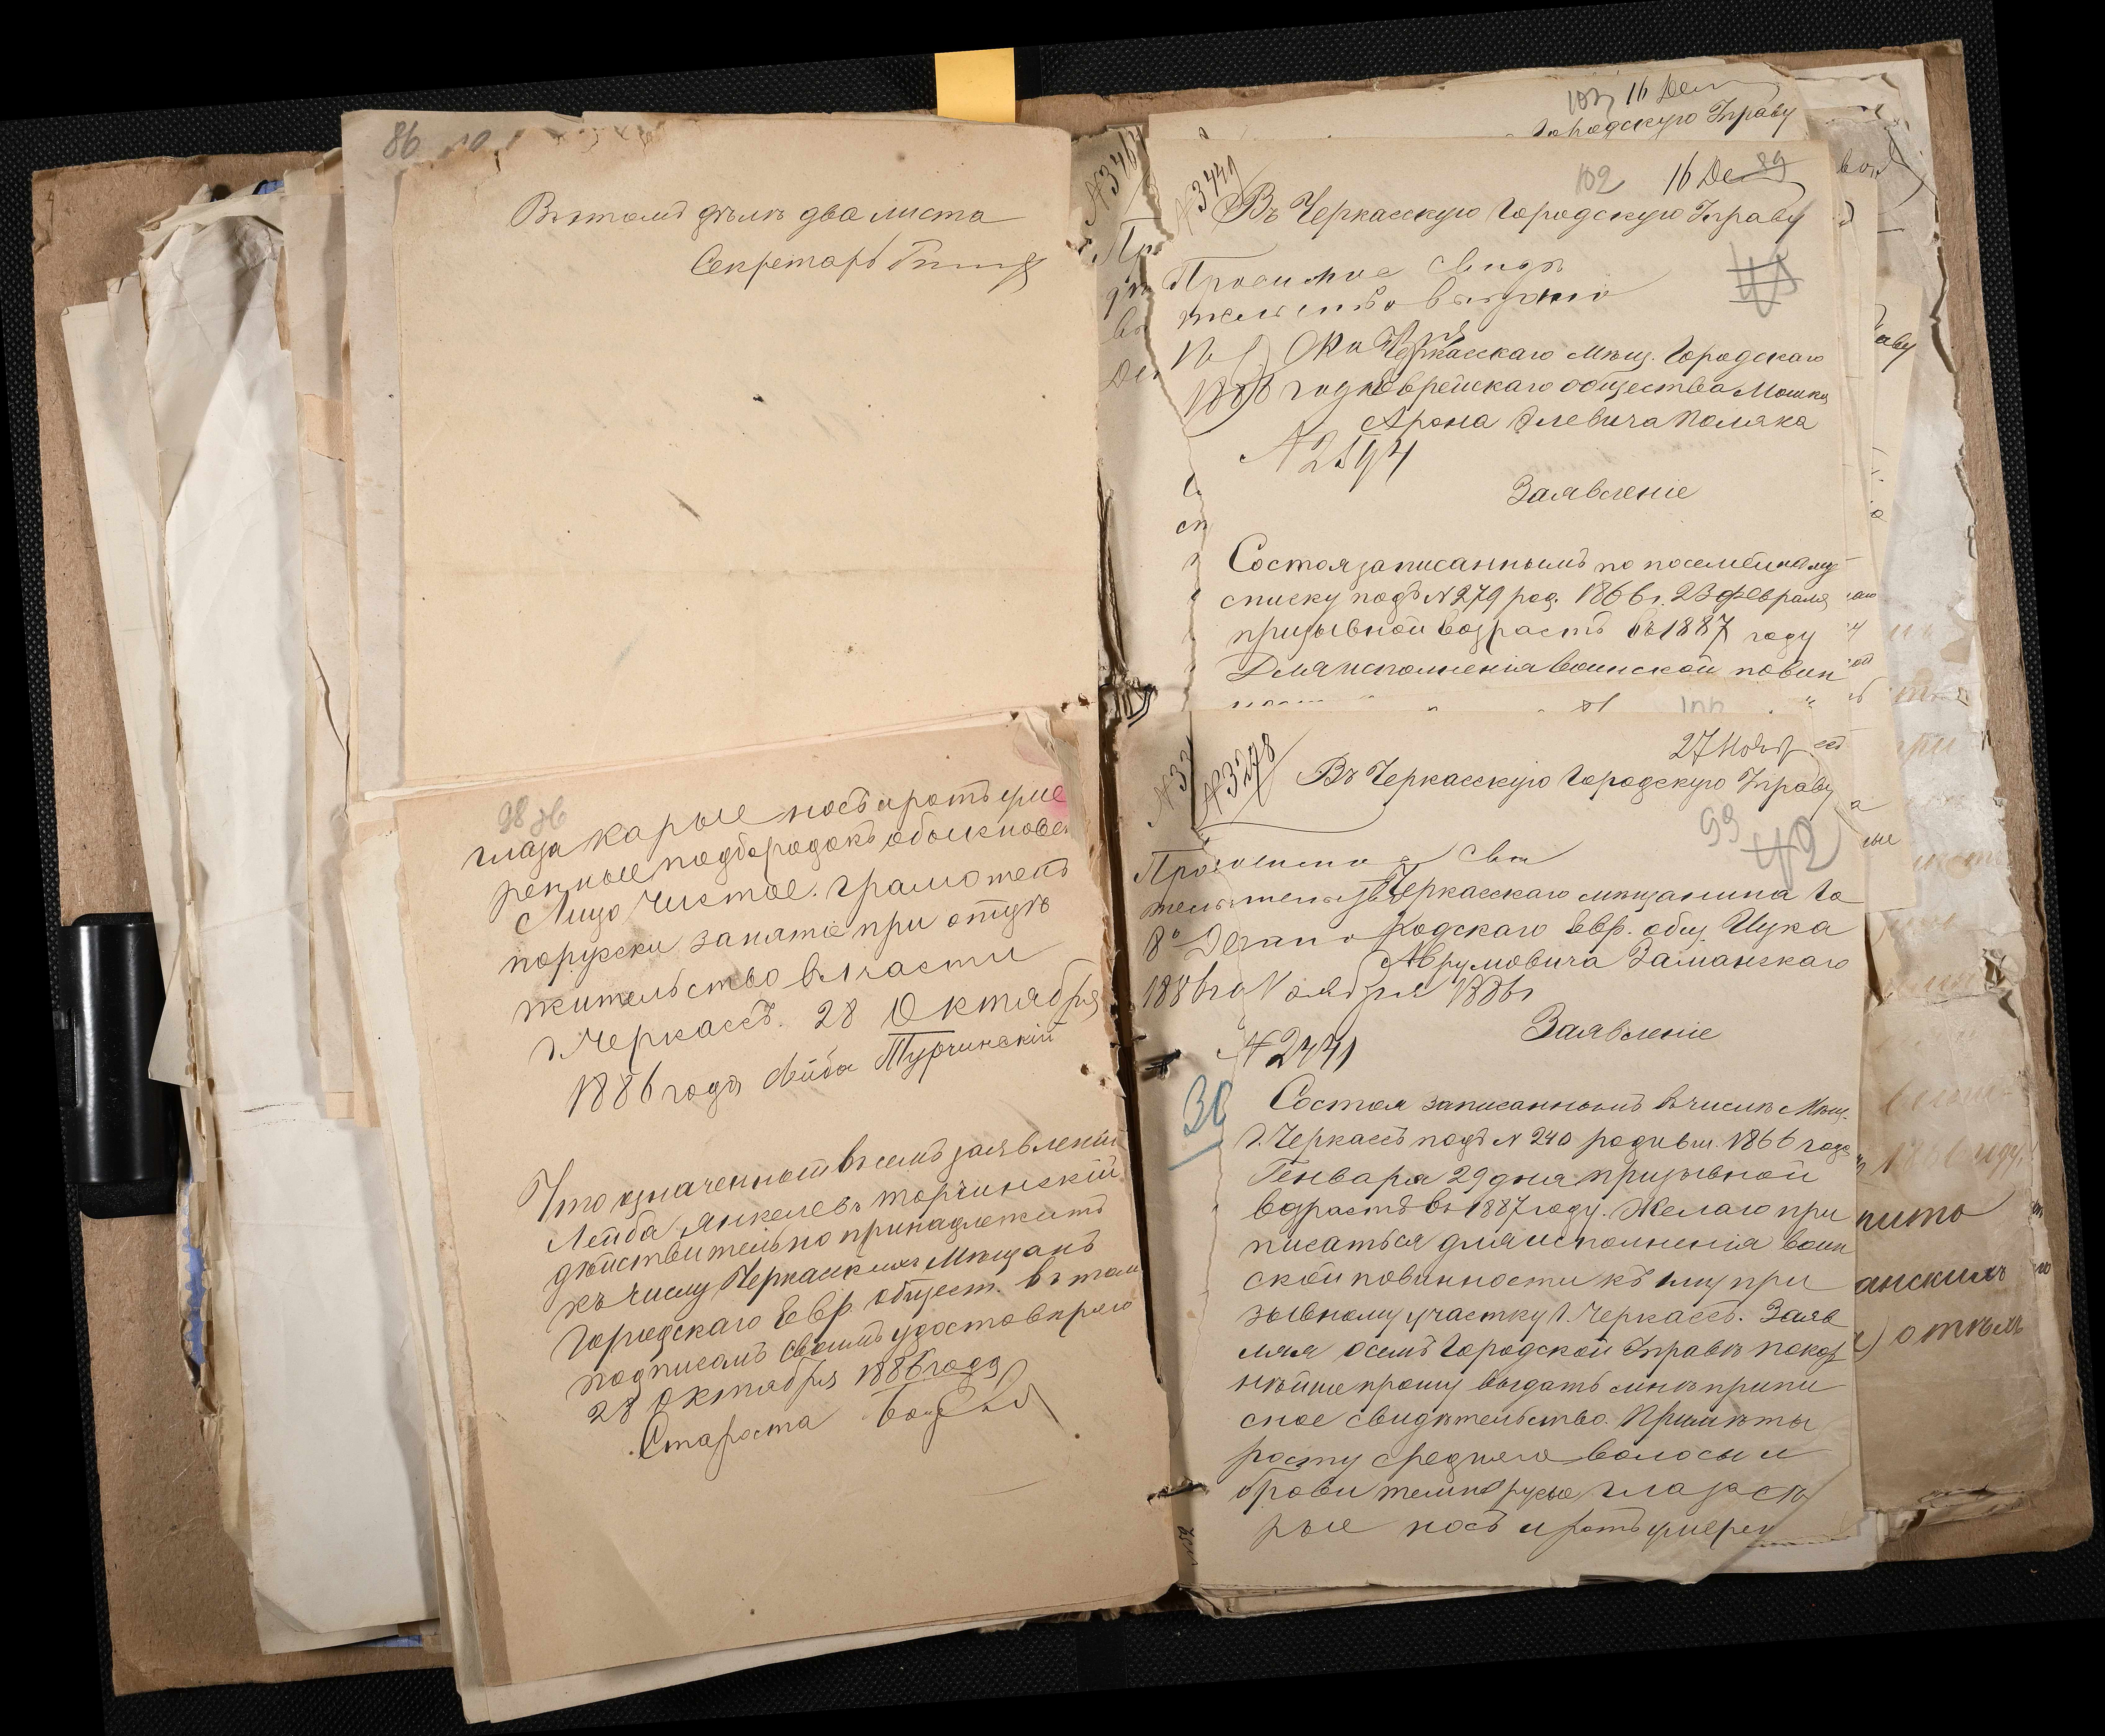 86
Въ этомъ дѣлѣ два листа
Секретарь
98 об
глаза карые носъ и ротъ уме
ренные подбородокъ обыкновен
Лицо чистое. грамотенъ
порусски занятіе при отцѣ
жительство въ 1 части
г. Черкассъ. 28 Октября
1886 года Лейба Турчинскій
Что означенный въ семъ заявленіи
Лейба Янкелевъ Торчинскій
дѣйствительно принадлежитъ
къ числу Черкаскихъ Мѣщанъ
Городскаго Евр. общест. въ том
подписомъ своимъ удостовѣряю
28 Октября 1886 года
Староста
103 16 Дек
Городскую Управу
№3449
102 16 Дек 89
Въ Черкасскую Городскую Управу
Просимое свидѣ
тельство выдано
Черкасскаго Мѣщ. Городскаго
1886 года Еврейскаго общества Мошка
Арона Элевича Поляка
№2594
Заявленіе
Состоя записаннымъ по посемейному
списку подъ №279 род. 1866 г. 23 Февраля
призывной возрастъ въ 1887 году
Для исполненія воинской повин
№3278
27 Нояб
Въ Черкасскую Городскую Управу
99 42
Черкасскаго мѣщанина Го
родскаго Евр. общ. Ицка
Аврумовича Заманскаго
Ноября 1886 г
№2441
Заявленіе
30
Состоя записаннымъ въ числѣ Мѣщ.
г. Черкассъ подъ №240 родивш. 1866 года
Генваря 29 дня призывной
возрастъ въ 1887 году. Желаю при
писаться для исполненія воин
ской повинности къ 1му при
зывному участку г. Черкассъ. Заяв
ляя о семъ Городской Управѣ покор
нѣйше прошу выдать мнѣ припи
сное свидѣтельство. Примѣты
росту средняго волосы и
брови темнорусые глаза сѣ
рые носъ и ротъ умерен